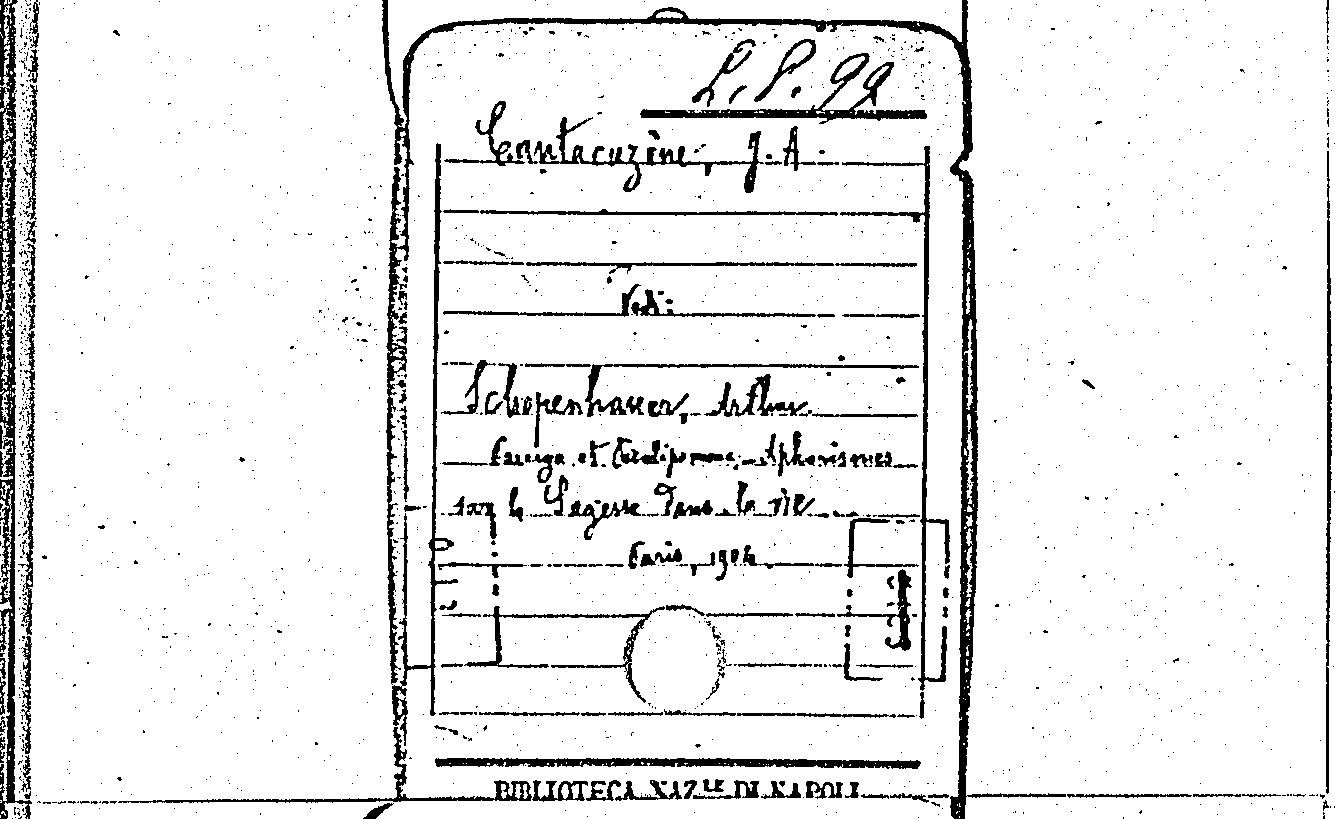 L.P. 99
Cantacuzène, J. A.
Vedi:
Schopenhauer, Arthur
Parerga et Paralipomena. Aphorismes
sur la Sagesse dans la vie
Paris, 1904
BIBLIOTECA NAZ.LE DI NAPOLI